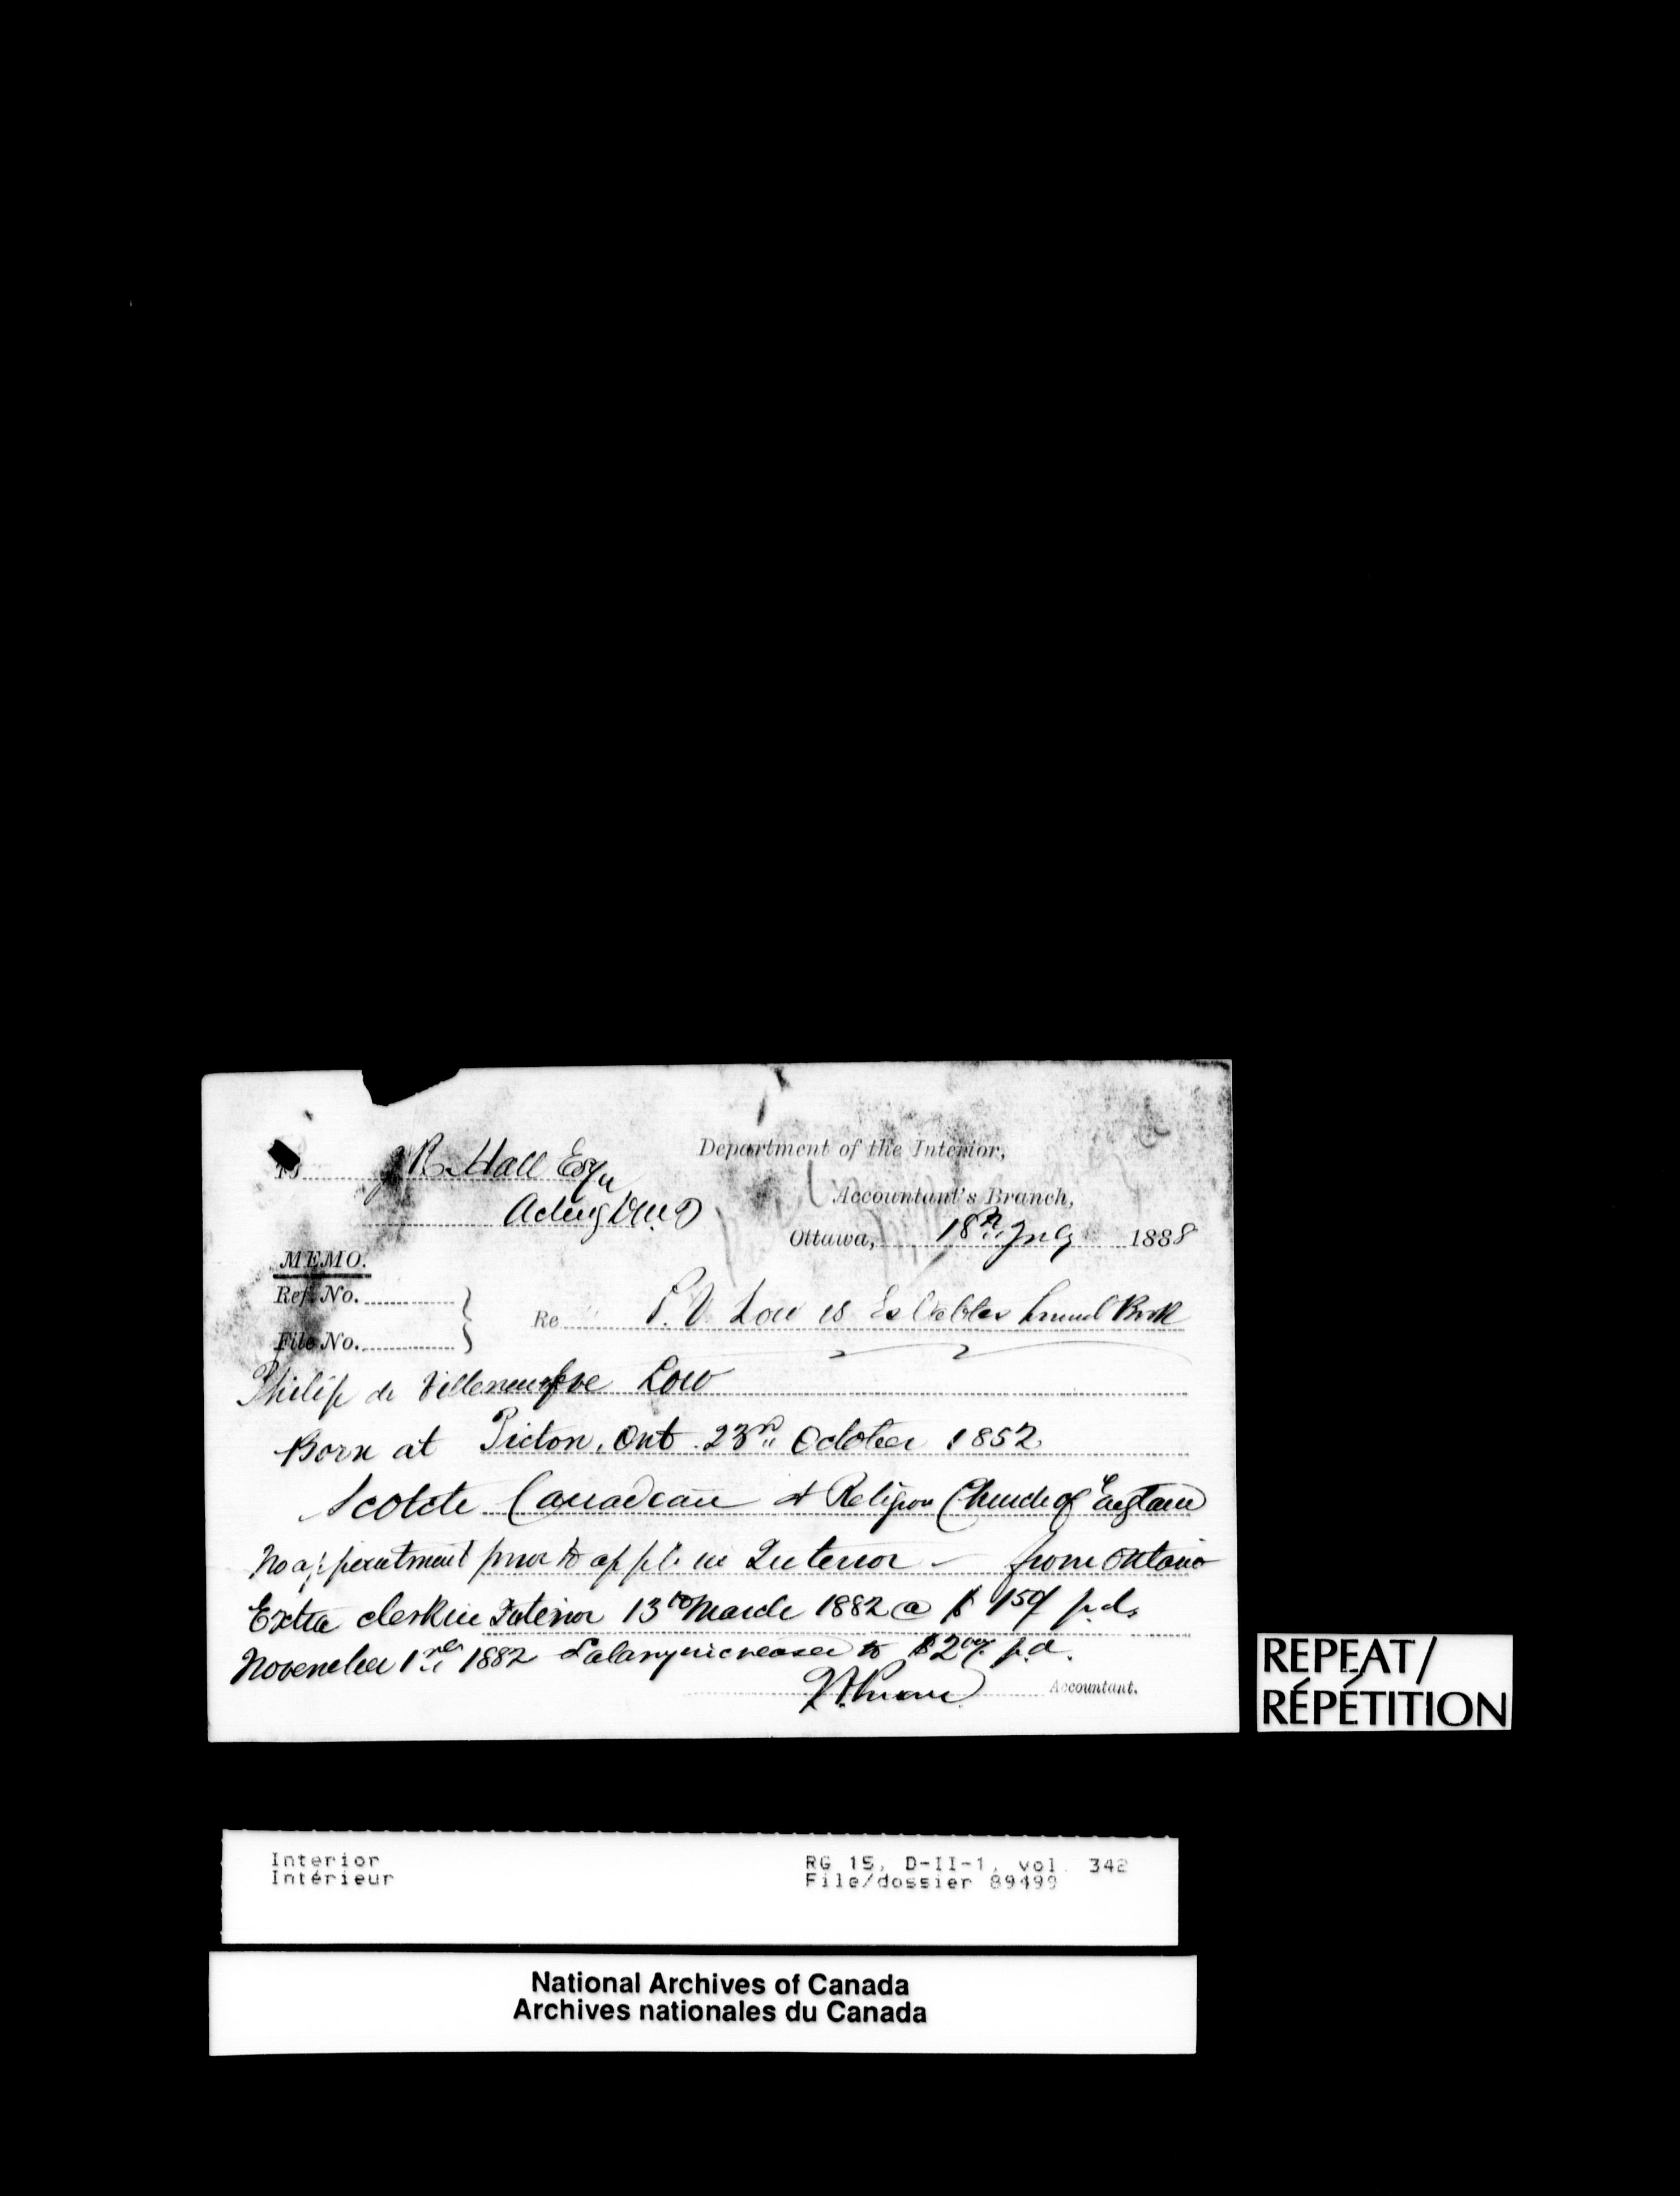 Department of the Interior,
To J R. Hall Esqr
Accountant's Branch,
Acting
Ottawa, 18th July 1888
MEMO.
Ref. No.
File No.
Re P. V. Low
Philip de Villeneufve Low
Born at Picton, Ont. 23rd October 1852
Scotch Canadian & Religion Church of England
No appointment prior to appt. in Interior – from Ontario
Extra clerk in Interior 13th March 1882 @ $ 1 50/ p.d.
November 1st 1882 Salary increased to $2 00/ p.d.
Accountant.
REPEAT/
RÉPÉTITION
Interior
Intérieur
RG 15, D-II-1, vol. 342
File/dossier 89499
National Archives of Canada
Archives nationales du Canada